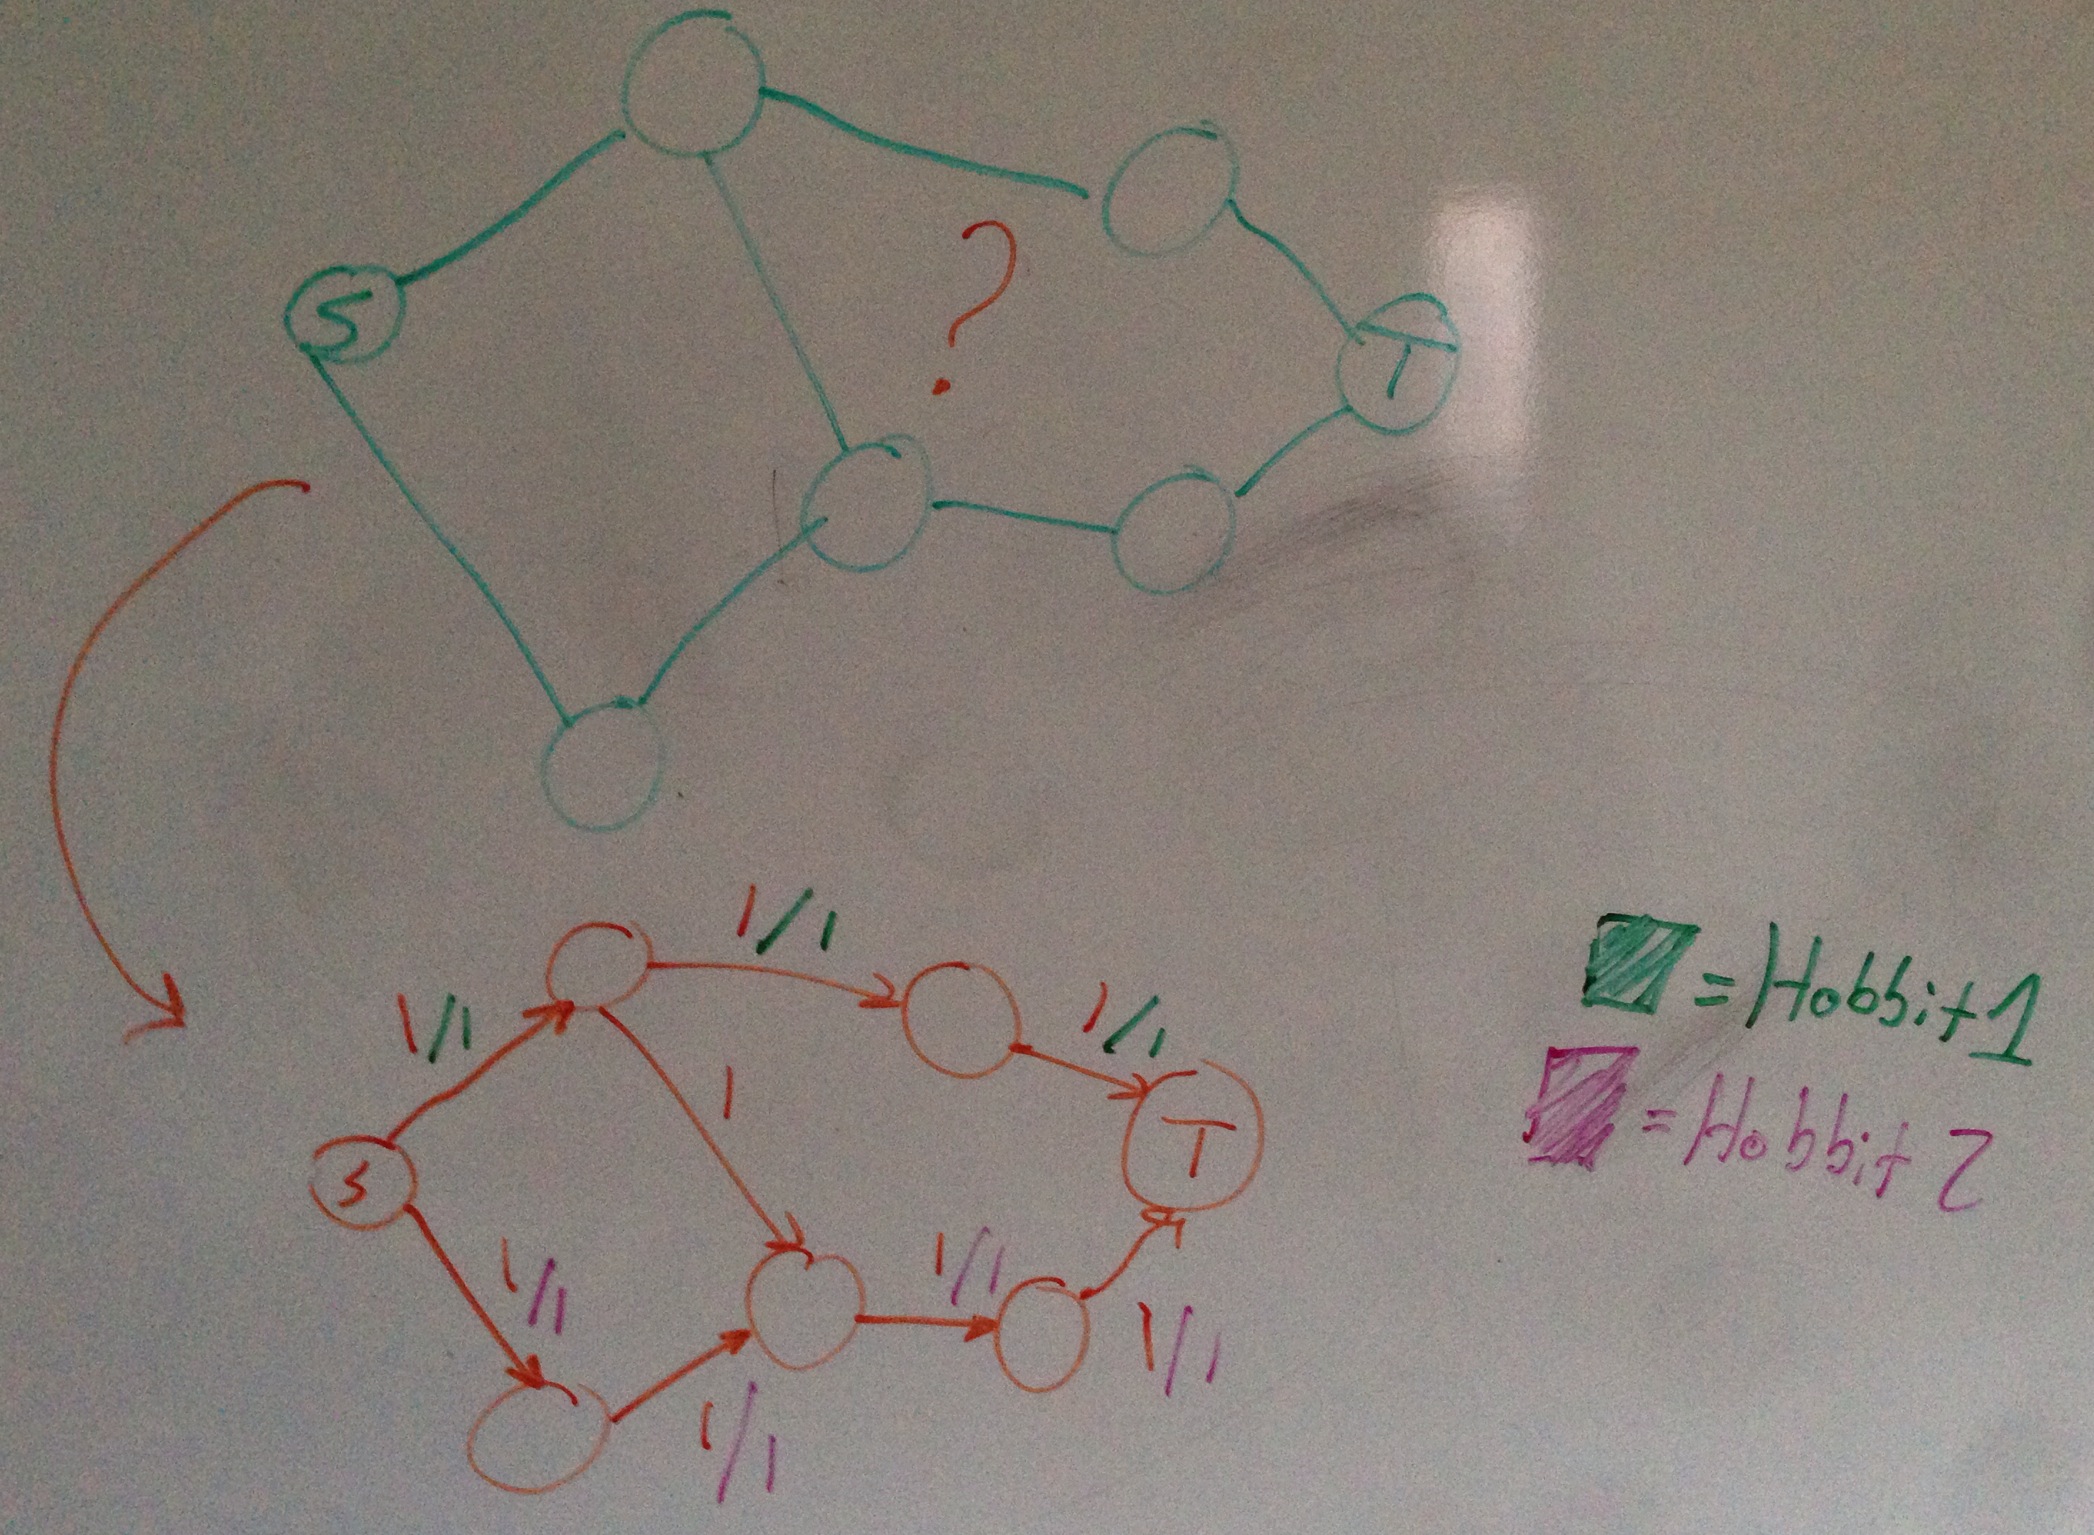 S
?
T
1/1
1/1
1/1
1
S
T
1/1
1/1
1/1
1/1
= Hobbit 1
= Hobbit 2